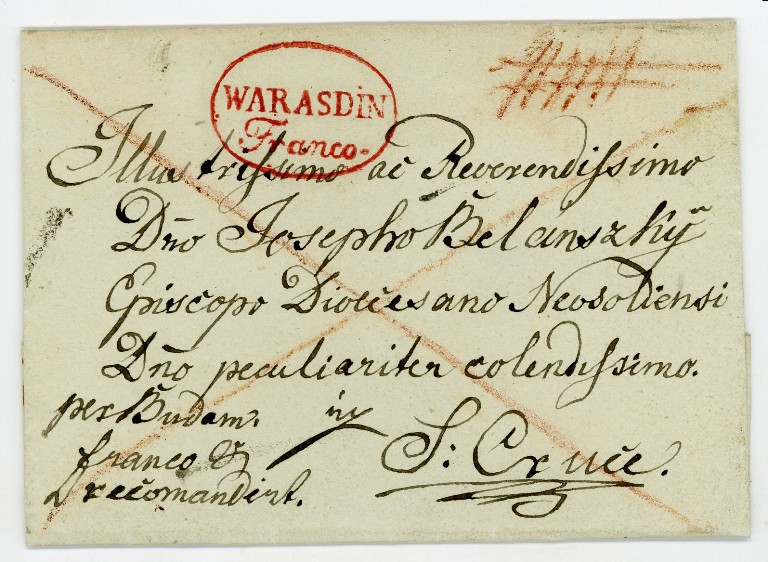 WARASDIN
Franco.
Illustrissimo ac Reverendissimo
Dño Josepho Belánszky
Episcopo Dioecesano Neosoliensi
Dño peculiariter colendissimo.
per Budam. in
franco & S: Cruce.
recomandirt.